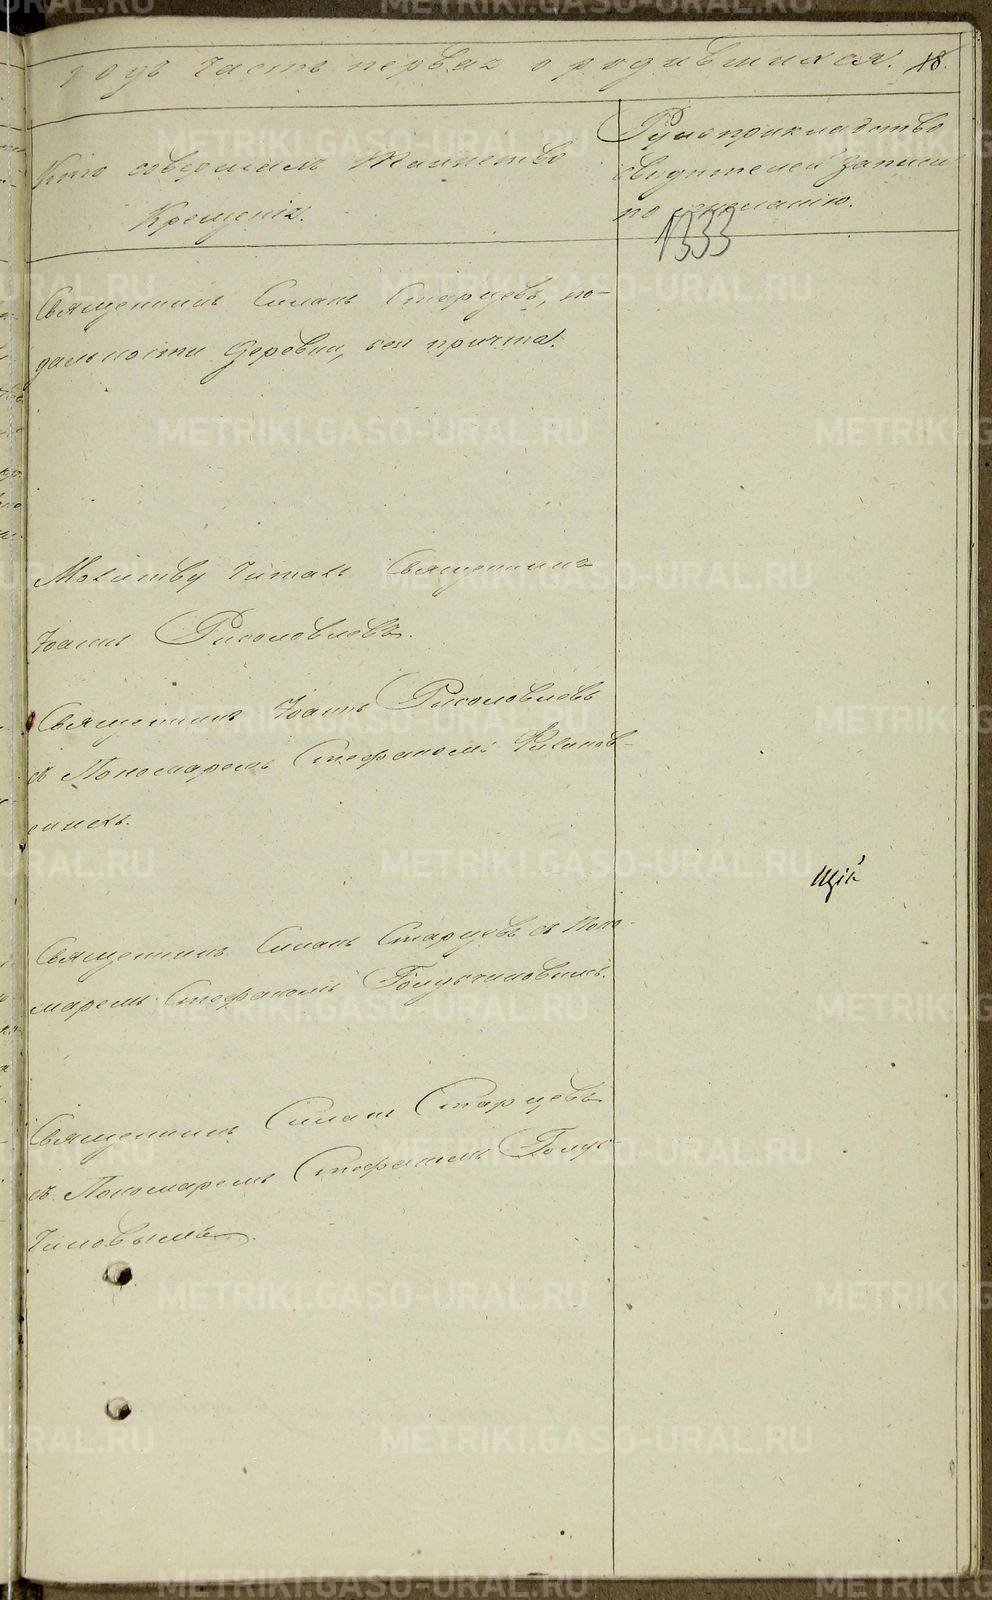 годъ часть первая о родившихся. 18.
Кто совершалъ Таинство
Крещенія.
Рукоприкладство
свидѣтелей записи
по желанію.
1333
Священникъ Силанъ Старцевъ, по
дальности деревни, безъ причта.
Молитву читалъ Священникъ
Іоаннъ
Священникъ Іоаннъ
съ Пономаремъ Стефаномъ
Священникъ Силанъ Старцевъ съ Поно-
маремъ Стефаномъ Голубчиковымъ.
щій
Священникъ Силанъ Старцевъ
съ Пономаремъ Стефаномъ Голуб-
чиковымъ.
METRIKI.GASO-URAL.RU